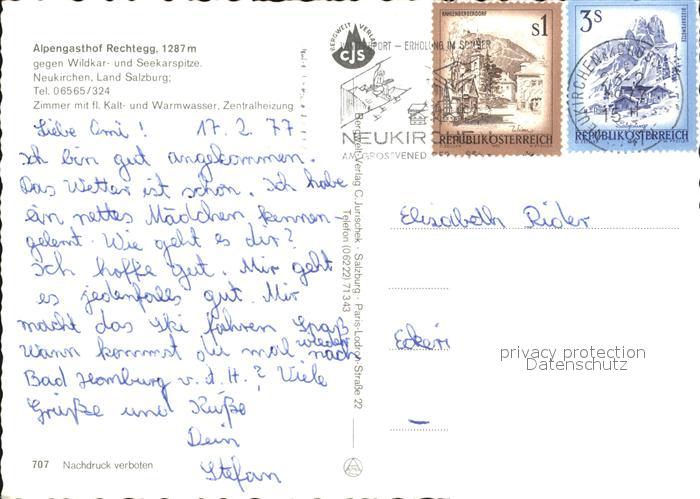 Alpengasthof Rechtegg, 1287 m
gegen Wildkar- und Seekarspitze.
Neukirchen, Land Salzburg;
Tel. 06565/324
Zimmer mit fl. Kalt- und Warmwasser, Zentralheizung
Liebe Omi! 17. 2. 77
Ich bin gut angekommen.
Das Wetter ist schön. Ich habe
ein nettes Mädchen kennen-
gelernt. Wie geht es dir?
Ich hoffe gut. Mir geht
es jedenfalls gut. Mir
macht das Ski fahren Spaß
Wann kommst du mal wieder nach
Bad Homburg v. d. H.? Viele
Grüße und Küße
Dein
Stefan
707 Nachdruck verboten
BERGWELT VERLAG
CJS
Bergwelt-Verlag C. Jurischek · Salzburg · Paris-Lodron-Straße 22
Telefon (06222) 71343
SPORT – ERHOLUNG IM SOMMER
NEUKIRCHEN
AM GROSSVENED
KAHLENBERGERDORF
s1
REPUBLIK ÖSTERREICH
3s
BISCHOFSMÜTZE
REPUBLIK ÖSTERREICH
Elisabeth Rider
privacy protection
Datenschutz